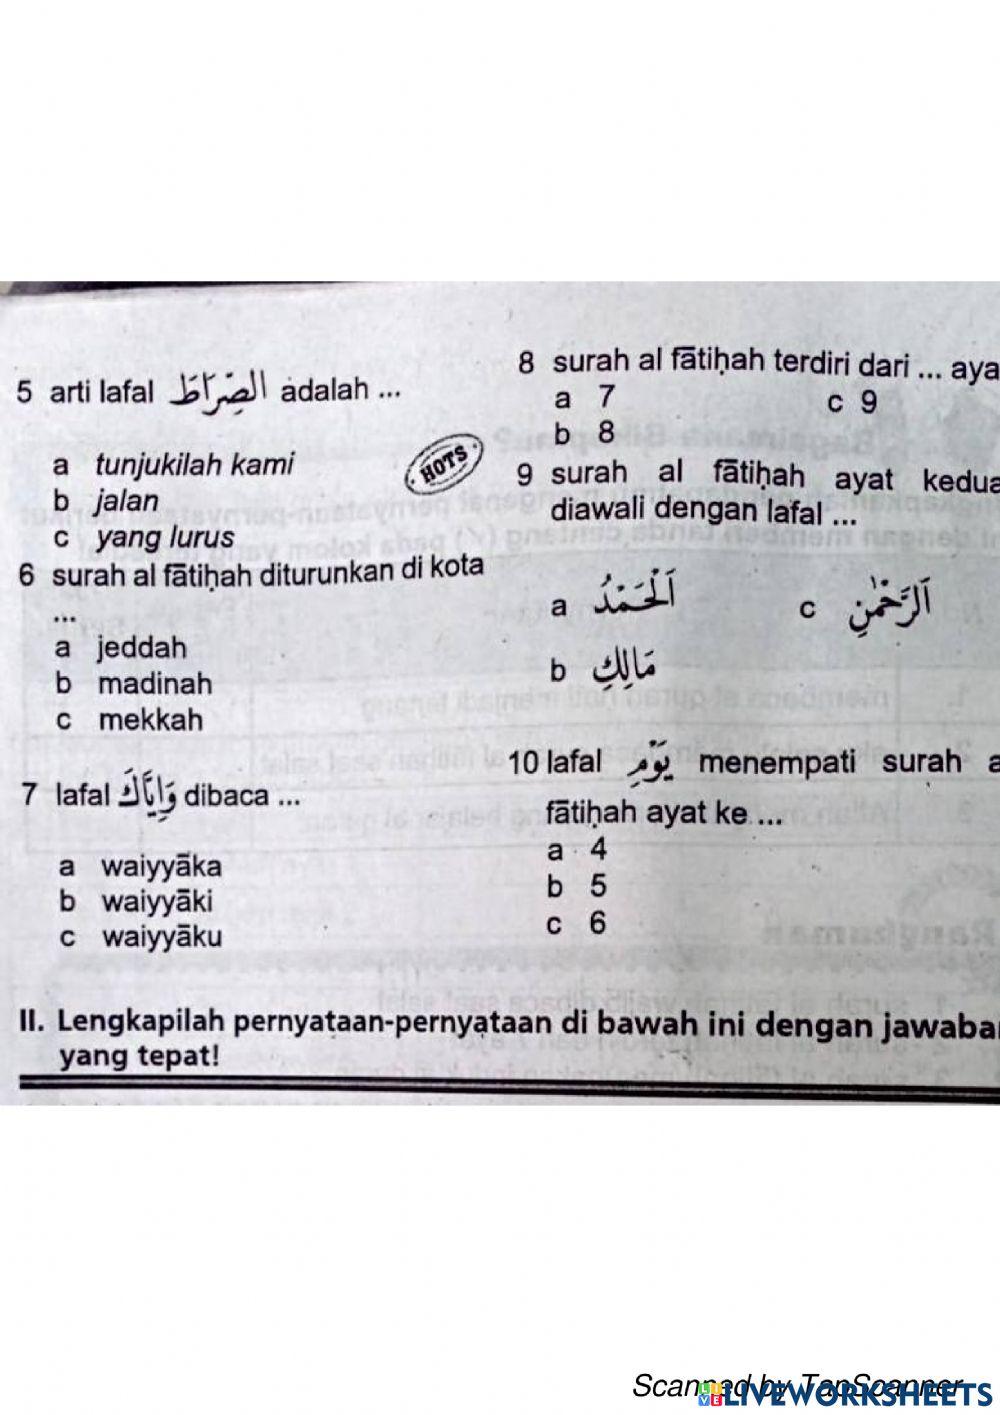 5 arti lafal الصِّرَاطَ adalah ...
a tunjukilah kami
b jalan
c yang lurus
HOTS
6 surah al fātiḥah diturunkan di kota
...
a jeddah
b madinah
c mekkah
7 lafal وَإِيَّاكَ dibaca ...
a waiyyāka
b waiyyāki
c waiyyāku
8 surah al fātiḥah terdiri dari ... aya
a 7 c 9
b 8
9 surah al fātiḥah ayat kedua
diawali dengan lafal ...
a اَلْحَمْدُ c اَلرَّحْمٰنِ
b مَالِكِ
10 lafal يَوْمِ menempati surah a
fātiḥah ayat ke ...
a 4
b 5
c 6
II. Lengkapilah pernyataan-pernyataan di bawah ini dengan jawaban
yang tepat!
Scanned by TapScanner
LIVEWORKSHEETS